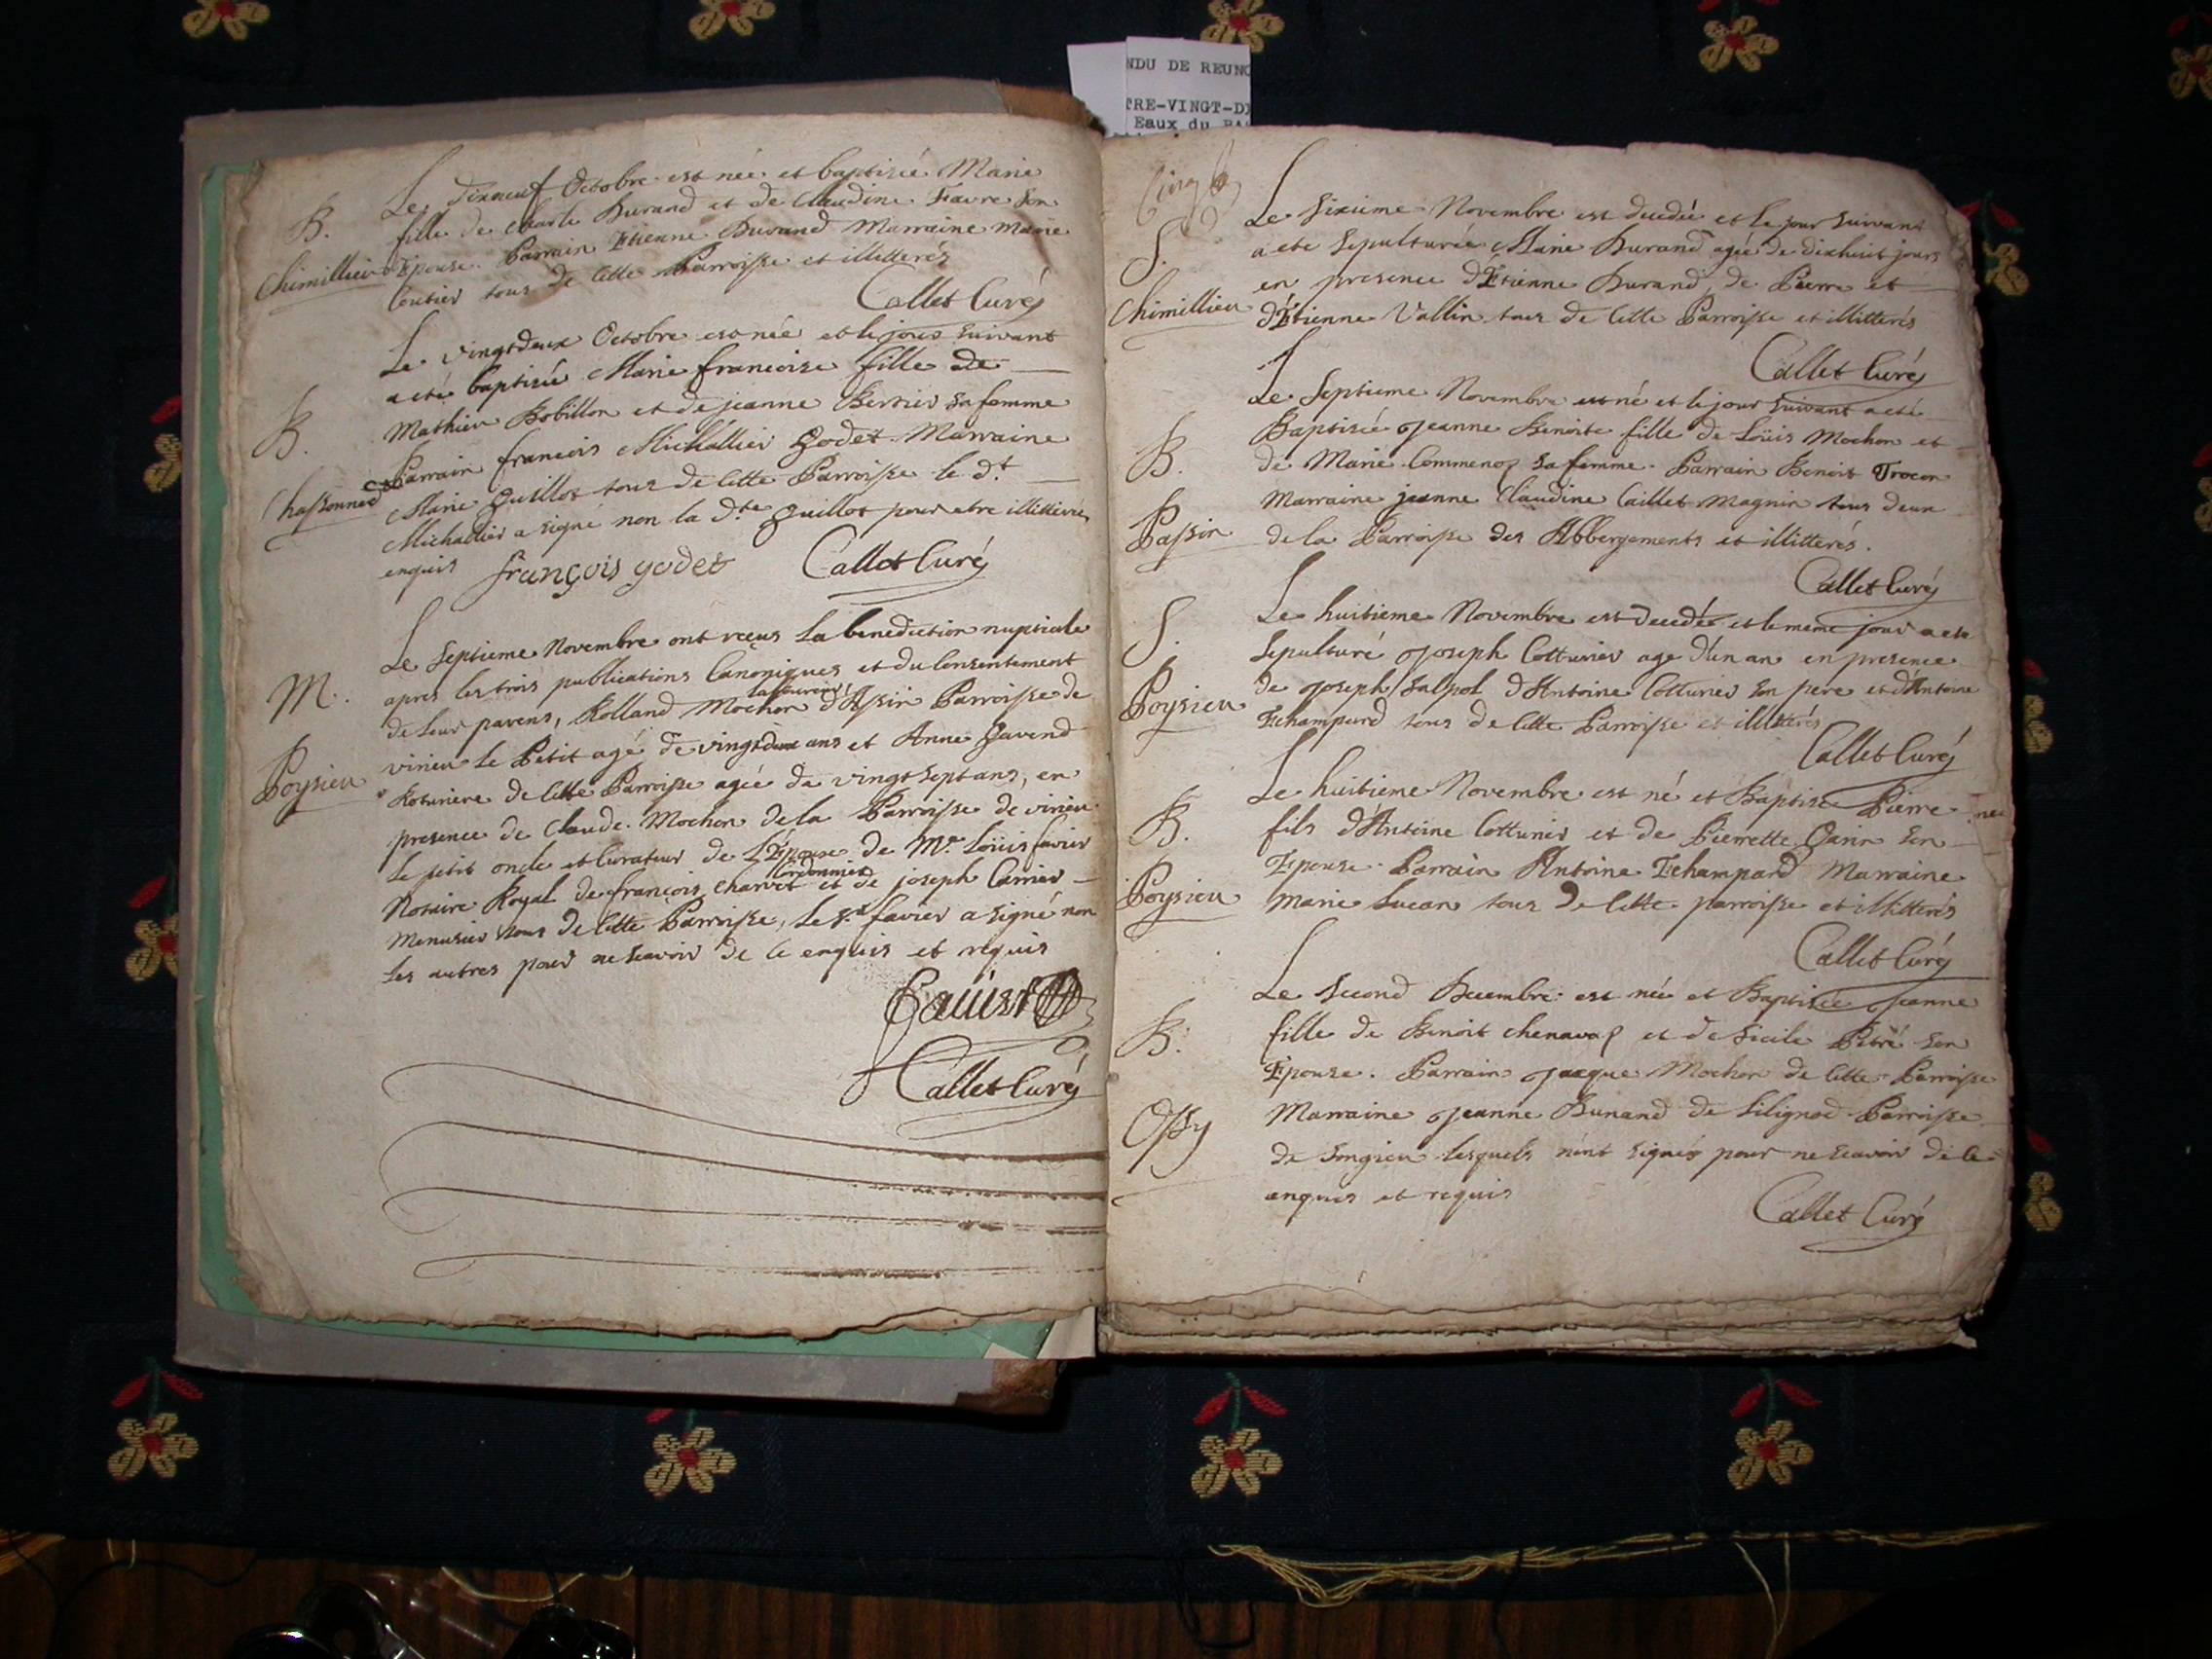 NDU DE REUNO
TRE-VINGT-DI
Eaux du BAS
B.
Chimillieu
Le dixneuf Octobre est née et baptisée Marie
fille de Charle Durand et de Claudine Favre son
Epouse. Parrain Etienne Durand Marraine Marie
tous de cette Parroisse et illitterés
Callet Curé
B.
Le vingtdeux Octobre est née et le jour suivant
a eté baptisée Marie françoise fille de
Mathieu Bobillon et de jeanne Bertier sa femme
Parrain francois Michallier Godet. Marraine
Marie Guillot tous de cette Parroisse le dt
Michallier a signé non la dte Guillot pour etre illitterée
enquis françois godet Callet Curé
M.
Poysieu
Le Septieme Novembre ont reçus la benediction nuptiale
apres les trois publications Canoniques et du Consentement
laboureur
de leur parens, Rolland Mochon d'Assin Parroisse de
virieu le Petit agé de vingtdeux ans et Anne Gavend
Roturiere de cette Parroisse agée de vingt sept ans, en
presence de Claude Mochon de la Parroisse de virieu
le petit oncle et Curateur de L'Epouse de Mre Loüis favier
Cordonnier
Notaire Royal de françois Charvet et de joseph Carrier
Menusier tous de cette Parroisse, le Sr favier a signé non
les autres pour ne scavoir de ce enquis et requis
Callet Curé
S.
Chimillieu
Le Sixieme Novembre est decedée et le jour suivant
a eté sepulturée Marie Durand agée de dixhuit jours
en presence d'Etienne Durand, de Pierre et
d'Etienne Vallin tous de cette Parroisse et illitterés
Callet Curé
B.
Passin
Le Septieme Novembre est né et le jour suivant a eté
Baptisée Jeanne Benoite fille de Loüis Mochon et
de Marie Commenoz sa femme. Parrain Benoit Trocon
Marraine jeanne Claudine Caillet Magnin tous deux
de la Parroisse des Abbergements et illitterés.
Callet Curé
S.
Poysieu
Le huitieme Novembre est decedée et le meme jour a eté
Sepulturé Joseph Cotturier age d'un an en presence
de Joseph Salpol d'Antoine Cotturier son pere et d'Antoine
Echampard tous de cette Parroisse et illitterés
Callet Curé
B.
Poysieu
Le huitieme Novembre est né et Baptisé Pierre
fils d'Antoine Cotturier et de Pierrette Garin son
Epouse. Parrain Antoine Echampard Marraine
Marie Lucan tous de cette parroisse et illitterés
Callet Curé
B.
Ossy
Le Second Decembre est née et Baptisée Jeanne
fille de Benoit chenavaz et de Sicile Petré son
Epouse. Parrain Jacque Mochon de cette Parroisse
Marraine Jeanne Dunand de Lilignod Parroisse
de Songieu lesquels n'ont signés pour ne scavoir de ce
enquis et requis
Callet Curé